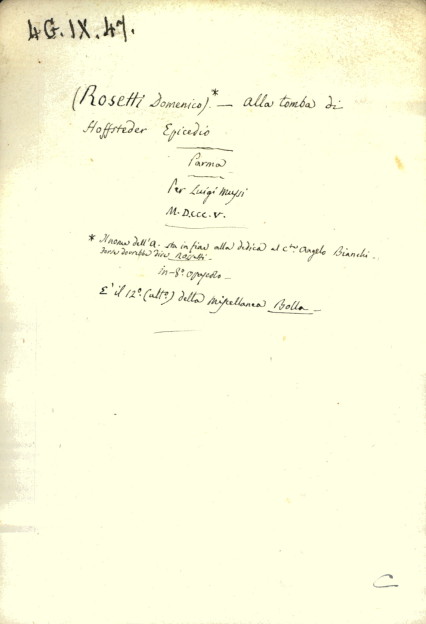 4G.IX.47.
(Rosetti Domenico).* — Alla tomba di
Hoffsteder Epicedio
Parma
Per Luigi Mussi
M.DCCC.V.
* Il nome dell'A. sta in fine alla dedica al c.te Angelo Bianchi.
forse dovrebbe dire Rossetti.
in-8º opuscolo —
E' il 12º (ult.º) della Miscellanea Bolla —
C